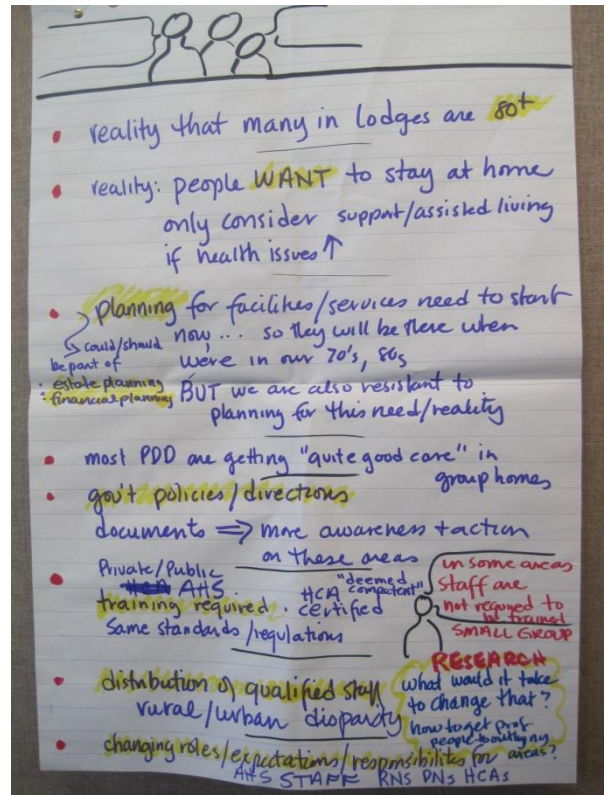 • reality that many in lodges are 80+
• reality: people WANT to stay at home
only consider support/assisted living
if health issues ↑
• planning for facilities/services need to start
now... so they will be there when
we're in our 70's, 80s
BUT we are also resistant to
planning for this need/reality
↳ could/should
be part of
• estate planning
• financial planning
• most PDD are getting "quite good care" in
group homes
• gov't policies/directions
documents ⇒ more awareness + action
on these areas
• Private/Public
AHS
training required • HCA "deemed competent"
certified
Same standards/regulations
in some areas
staff are
not required to
be trained
SMALL GROUP
• distribution of qualified staff
rural/urban disparity
RESEARCH
what would it take
to change that?
how to get prof
people to outlying
areas?
• changing roles/expectations/responsibilites for
AHS STAFF RNS PNs HCAs